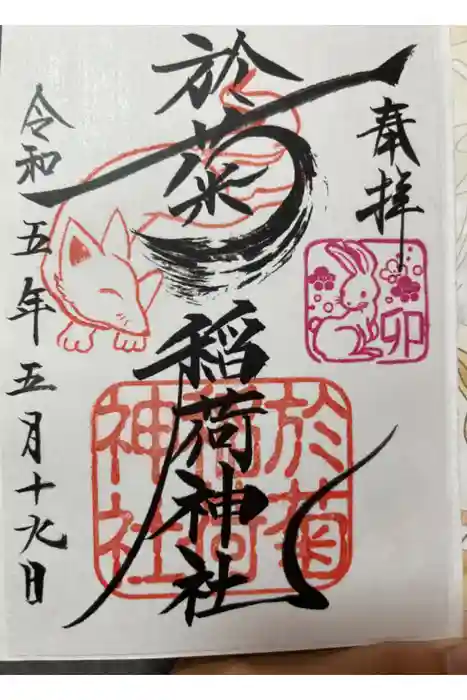 奉拝
卯
於菊稲荷神社
於菊
稲荷
神社
令和五年五月十九日